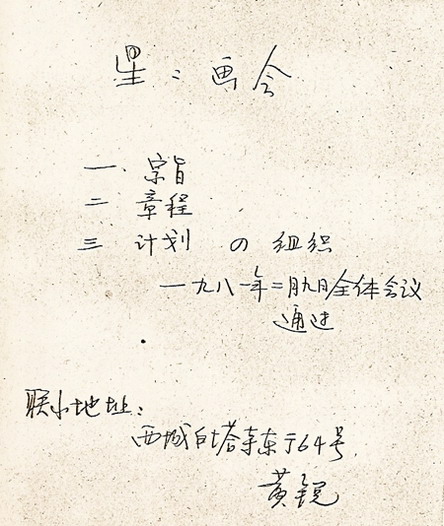 星：画会
一 宗旨
二 章程
三 计划 の 组织
一九八一年二月九日全体会议
通过
联小地址：
西城白塔寺东亍64号
黄锐